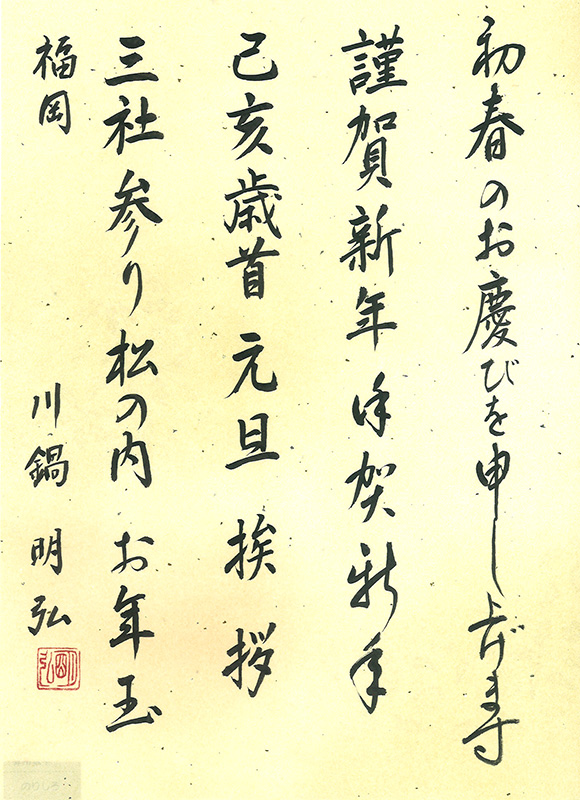 初春のお慶びを申し上げます
謹賀新年 謹賀新年
己亥歳首 元旦 挨拶
三社参り 松の内 お年玉
福岡 川鍋 明弘
明弘
のりしろ